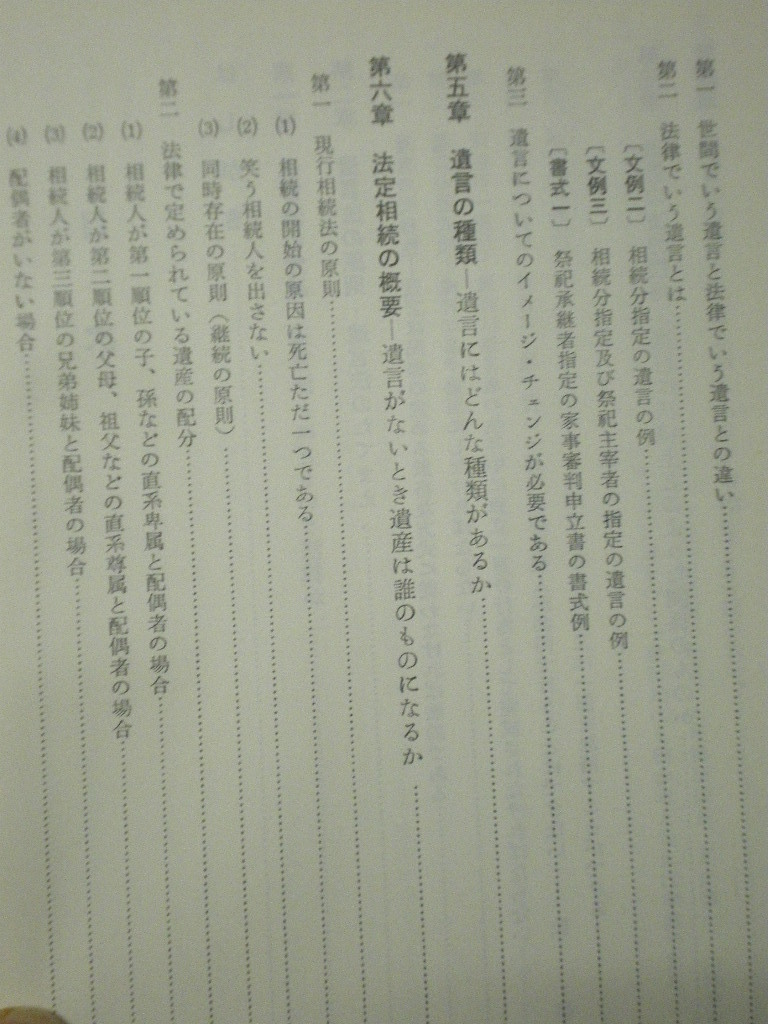 第一　世間でいう遺言と法律でいう遺言との違い
第二　法律でいう遺言とは
〔文例二〕　相続分指定の遺言の例
〔文例三〕　相続分指定及び祭祀主宰者の指定の遺言の例
〔書式一〕　祭祀承継者指定の家事審判申立書の書式例
第三　遺言についてのイメージ・チェンジが必要である
第五章　遺言の種類―遺言にはどんな種類があるか
第六章　法定相続の概要―遺言がないとき遺産は誰のものになるか
第一　現行相続法の原則
(1)　相続の開始の原因は死亡ただ一つである
(2)　笑う相続人を出さない
(3)　同時存在の原則（継続の原則）
第二　法律で定められている遺産の配分
(1)　相続人が第一順位の子、孫などの直系卑属と配偶者の場合
(2)　相続人が第二順位の父母、祖父などの直系尊属と配偶者の場合
(3)　相続人が第三順位の兄弟姉妹と配偶者の場合
(4)　配偶者がいない場合